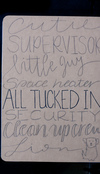 cutie
SUPERVISOR
little guy
space heater
ALL TUCKED IN
SECURITY
clean up crew
Lion